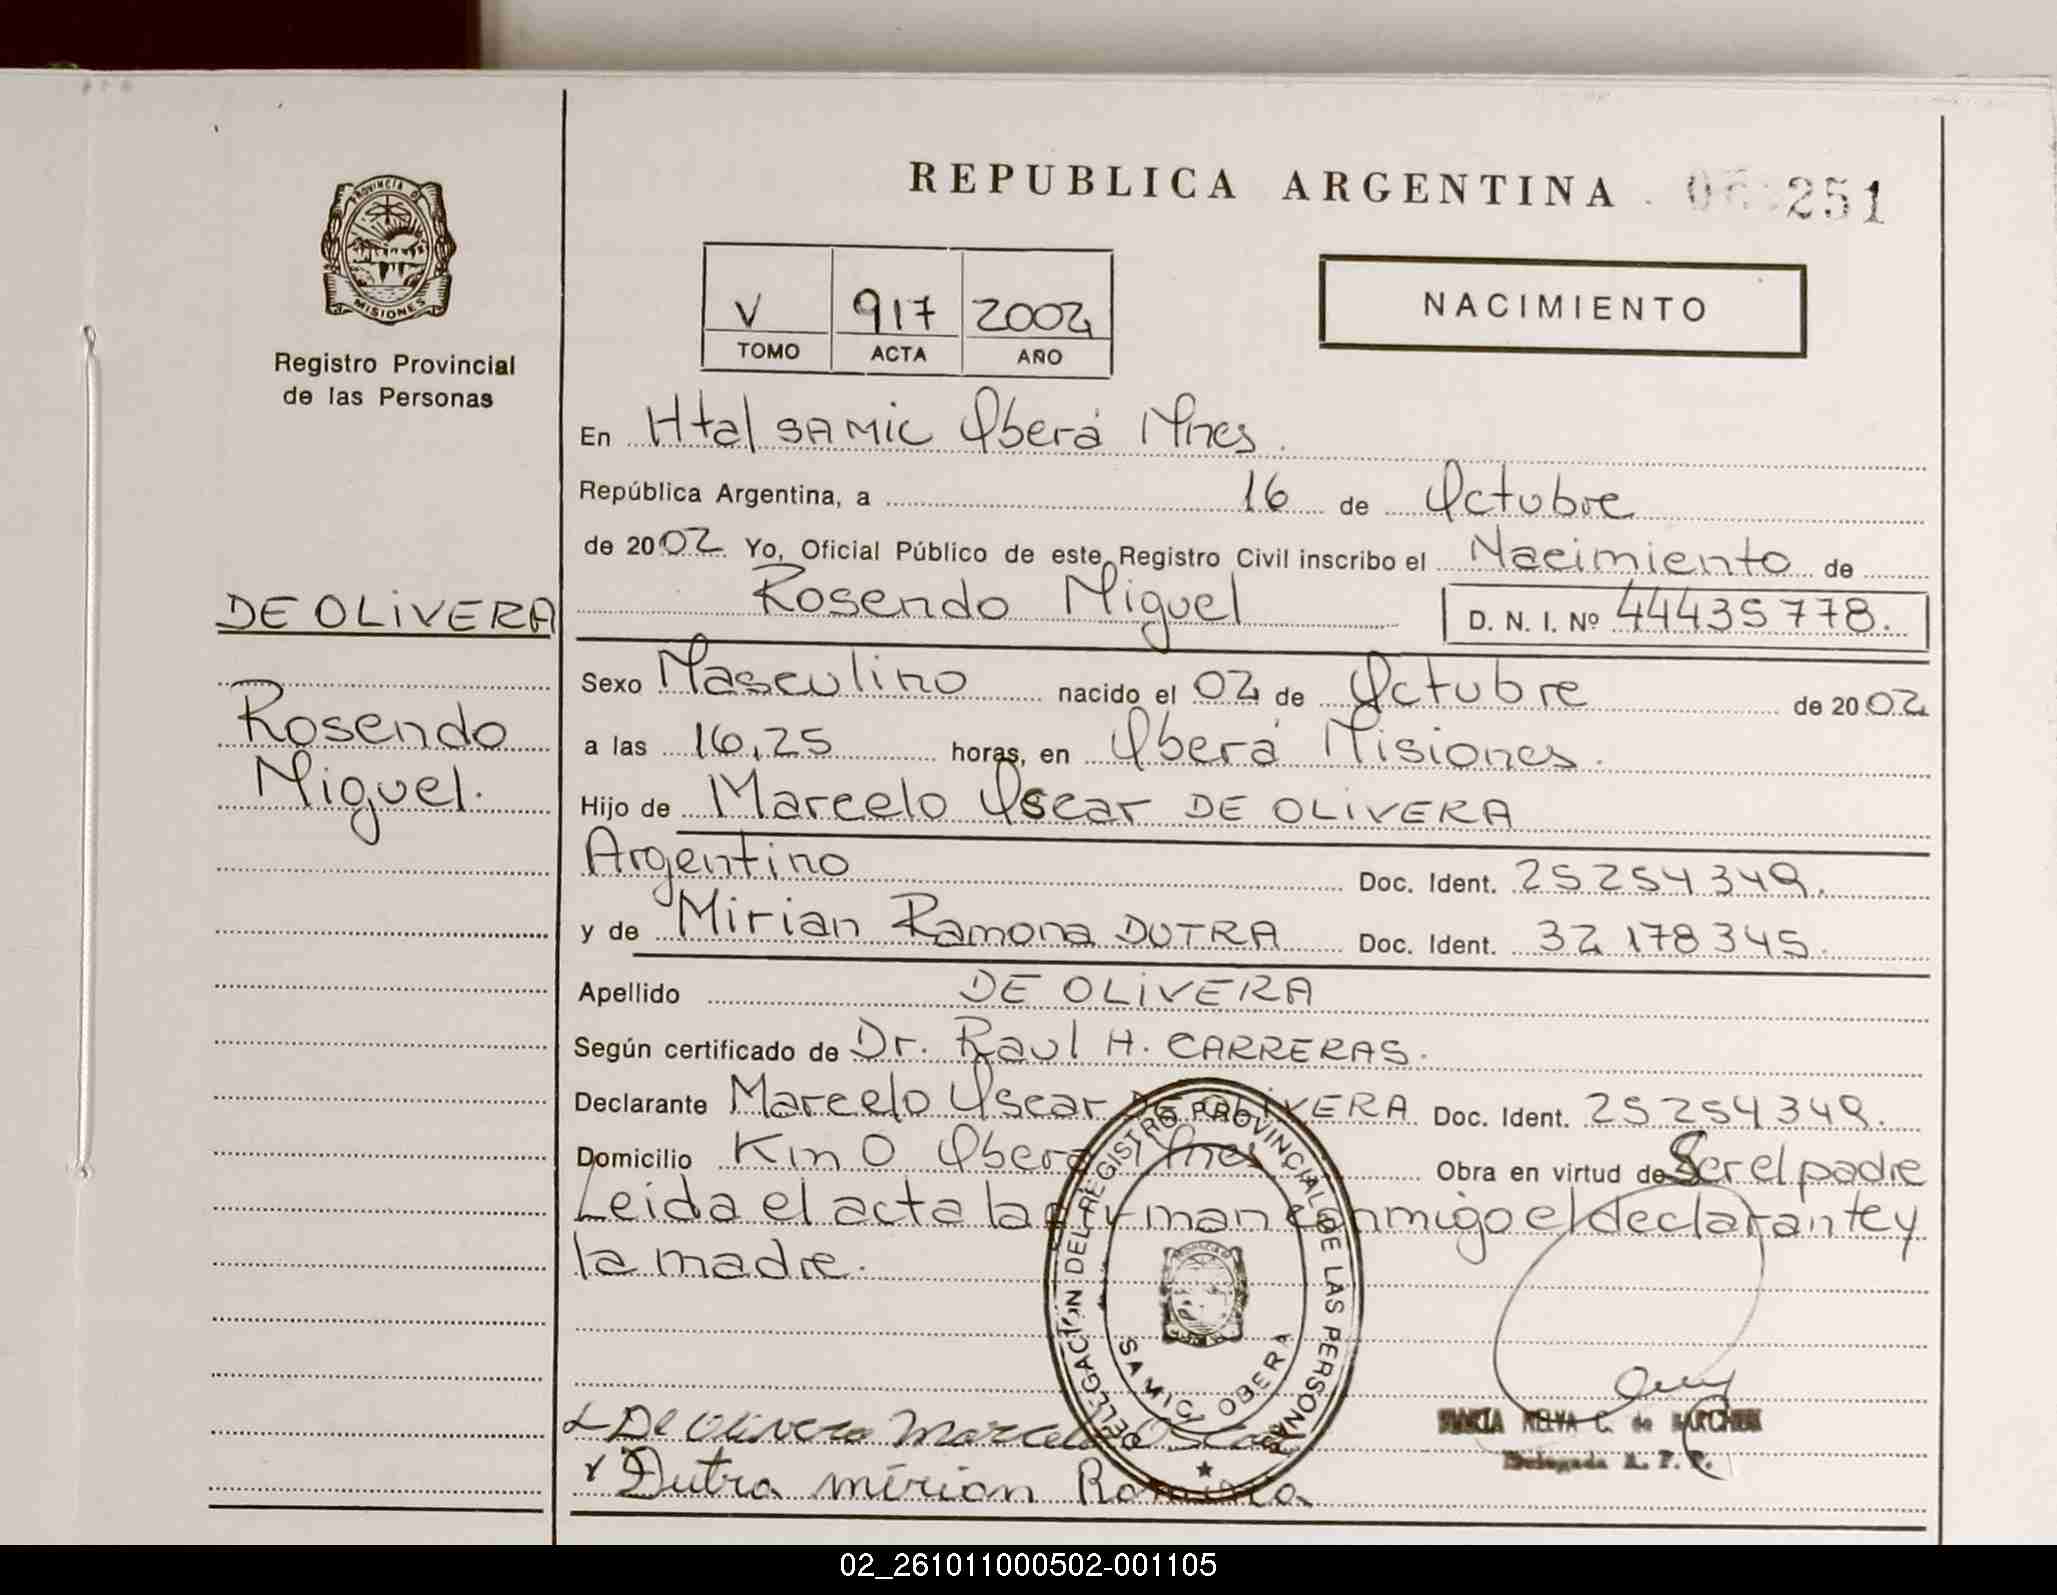 REPUBLICA ARGENTINA 251
PROVINCIA DE
MISIONES
Registro Provincial
de las Personas
V 917 2002
TOMO ACTA AÑO
NACIMIENTO
En Htal SAMIC Oberá Mnes.
República Argentina, a 16 de Octubre
de 2002 Yo, Oficial Público de este Registro Civil inscribo el Nacimiento de
Rosendo Miguel D. N. I. Nº 44435778.
DE OLIVERA
Rosendo
Miguel.
Sexo Masculino nacido el 02 de Octubre de 2002
a las 16,25 horas, en Oberá Misiones.
Hijo de Marcelo Oscar DE OLIVERA
Argentino Doc. Ident. 25254349.
y de Mirian Ramona DUTRA Doc. Ident. 32178345.
Apellido DE OLIVERA
Según certificado de Dr. Raul H. CARRERAS.
Declarante Marcelo Oscar DE OLIVERA Doc. Ident. 25254349.
Domicilio Km 0 Oberá Mnes Obra en virtud de Ser el padre
Leida el acta la firman conmigo el declarante y
la madre.
DELEGACION DEL REGISTRO PROVINCIAL DE LAS PERSONAS
SAMIC, OBERA
De Olivera Marcelo Oscar
Dutra mirian Ramona
MARIA MELVA C. de
Delegada R. P. P.
02_261011000502-001105